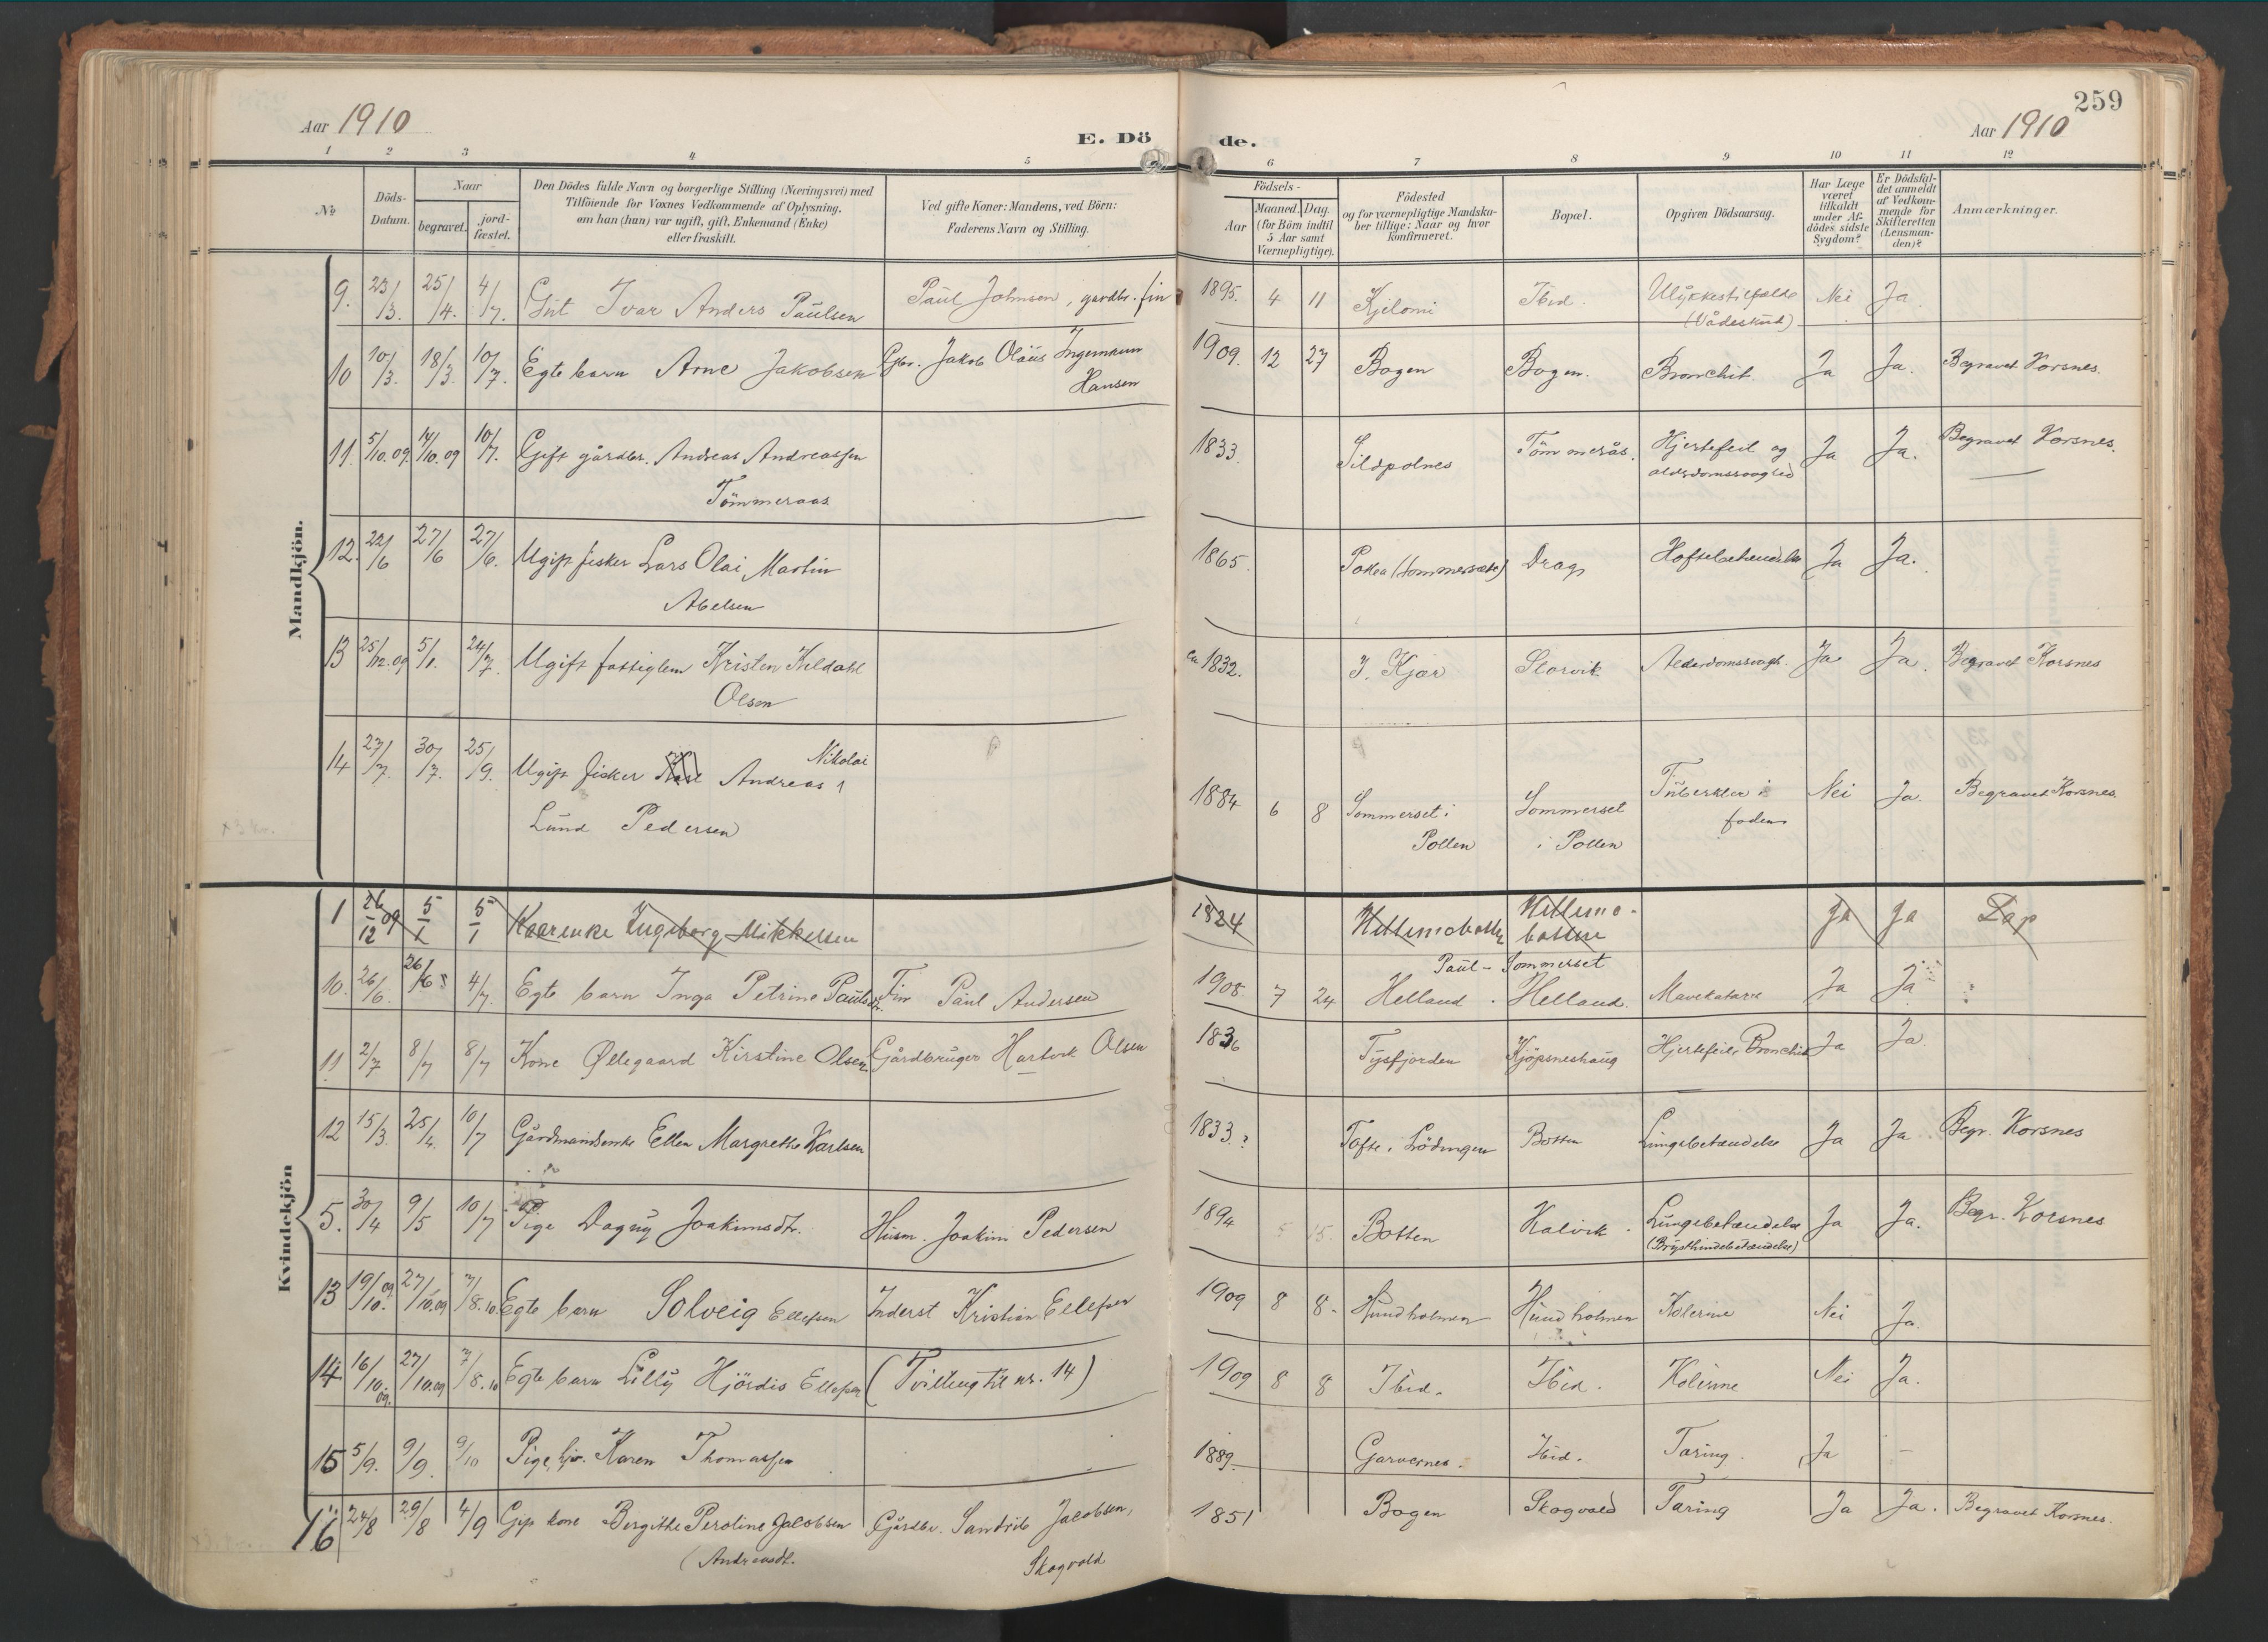 259
Aar 1910
E. Dö
de.
Aar 1910
1 2 3 4 5 6 7 8 9 10 11 12
No
Döds-
Datum.
Naar
begravet.
jord-
fæstet.
Den Dödes fulde Navn og borgerlige Stilling (Næringsvei) med
Tilföiende for Voxnes Vedkommende af Oplysning,
om han (hun) var ugift, gift, Enkemand (Enke)
eller fraskilt.
Ved gifte Koner: Mandens, ved Börn:
Faderens Navn og Stilling.
Födsels-
Aar
Maaned. Dag.
(for Börn indtil
5 Aar samt
Værnepligtige).
Födested
og for værnepligtige Mandska-
ber tillige: Naar og hvor
konfirmeret.
Bopæl.
Opgiven Dödsaarsag.
Har Læge
været
tilkaldt
under Af-
dödes sidste
Sygdom?
Er Dödsfal-
det anmeldt
af Vedkom-
mende for
Skifteretten
(Lensman-
den)?
Anmærkninger.
Mandkjön.
9. 23/3. 25/4. 4/7. Gut Ivar Anders Paulsen Paul Johnsen, gardbr. fin 1895. 4 11 Kjelomi Ibid. Ulykkestilfælde Nei Ja
(Vådeskud)
10 10/3. 18/3. 10/7. Egte barn Arne Jakobsen Gbr. Jakob Olaus Ingemann 1909. 12 27 Bogen Bogen. Bronchit. Ja Ja. Begravet Korsnes.
Hansen
11. 5/10.09. 14/10.09 10/7. Gift gårdbr. Andreas Andreassen 1833. Sildpolnes Tömmerås. Hjertefeil og Ja Ja. Begravet Korsnes.
Tömmeraas alderdomssvaghed
12. 22/6 27/6 27/6. Ugift fisker Lars Olai Martin 1865. (Sommersæt) Drag Hoftebetændelse Ja Ja.
Abelsen
13 25/12.09 5/1. 24/7. Ugift fattiglem Kristen Kildahl ca 1832. I. Kjær Storvik Alderdomssvagh. Ja Ja. Begravet Korsnes
Olsen
14 27/7. 30/7. 25/9. Ugift fisker Andreas Nikolai
Lund Pedersen 1884 6 8 Sommerset i Sommerset Tuberkler i Nei Ja. Begravet Korsnes.
Pollen i Pollen foden
Kvindekjön
1 26/12 09 5/1 5/1 Kaarenke Ingeborg Mikkelsen 1824 Hellemobotten Hellemo-
botten Ja Ja Lap
Paul - Sommerset
10. 26/6. 26/6 4/7. Egte barn Inga Petrine Paulsdr. Fin Paul Andersen 1908. 7 24 Helland. Helland. Mavekatarr Ja Ja
11 2/7 8/7 8/7 Kone Øllegaard Kirstine Olsen. Gårdbruger Hartvik Olsen 1836 Tysfjorden Kjöpsneshaug Hjertefeil, Bronchit Ja Ja.
12 15/3. 25/4. 10/7 Gårdmandsenke Ellen Margrethe Karlsen 1833.? Tofte i Lödingen Botten Lungebetændelse Ja Ja Begr. Korsnes
5. 30/4 9/5 10/7 Pige Dagny Joakimsdtr. Husm. Joakim Pedersen 1894 5 15. Botten Kalvik Lungebetændelse Ja Ja. Begr. Korsnes
(Brysthindebetændelse)
13 19/10.09 27/10.09 7/8.10 Egte barn Solveig Ellefsen Inderst Kristian Ellefsen 1909 8 8. Hundholmen Hundholmen Kolerine Nei Ja.
14 16/10.09. 27/10.09 7/8.10 Egte barn Lilly Hjördis Ellefsen (Tvilling til nr. 14) 1909 8 8 Ibid. Ibid. Kolerine Nei Ja.
15 5/9. 9/9. 9/10 Pige Karen Thomassen 1889. Garvernes. Ibid. Tæring. Ja -
16 24/8 29/8 4/9 Gift kone Bergitthe Peroline Jacobsen Gårdbr. Sandrik Jacobsen, 1851 Bogen Skogvold Tæring Ja Ja. Begravet Korsnes.
(Andreasdt. Skogvold